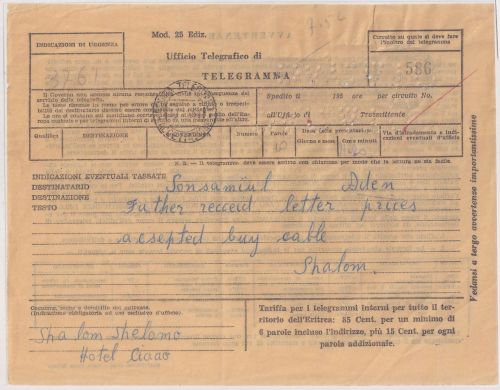 Mod. 25 Ediz.
7.52
INDICAZIONI DI URGENZA
Circuito sul quale si deve fare
l'inoltro del telegramma
Ufficio Telegrafico di
TELEGRAMMA
3761
586
Il Governo non assume alcuna
servizio della telegrafia.
Spedito il 195 ore per circuito No.
all'Ufficio di Trasmittente
Qualifica
DESTINAZIONE
PROVENIENZA
Numero
Parole
Data della presentazione
Giorno e mese
Ore e minuti
Via d'istradamento e indi-
cazioni eventuali d'ufficio
10
N. B. - Il telegramma deve essere scritto con chiarezza per modo che la lettura ne sia facile.
INDICAZIONI EVENTUALI TASSATE
DESTINATARIO Sonsamiul Aden
DESTINAZIONE
TESTO Father recceid letter prices
acsepted buy cable
Shalom.
Vedansi a tergo avvertenze importantissime
Cognome, nome e domicilio del mittente.
(Indicazione obbligatoria ad uso esclusivo d'ufficio).
Shalom Shelomo
Hotel Ciaao
Tariffa per i telegrammi interni per tutto il ter-
ritorio dell'Eritrea: 85 Cent. per un minimo di
6 parole incluso l'indirizzo, più 15 Cent. per ogni
parola addizionale.